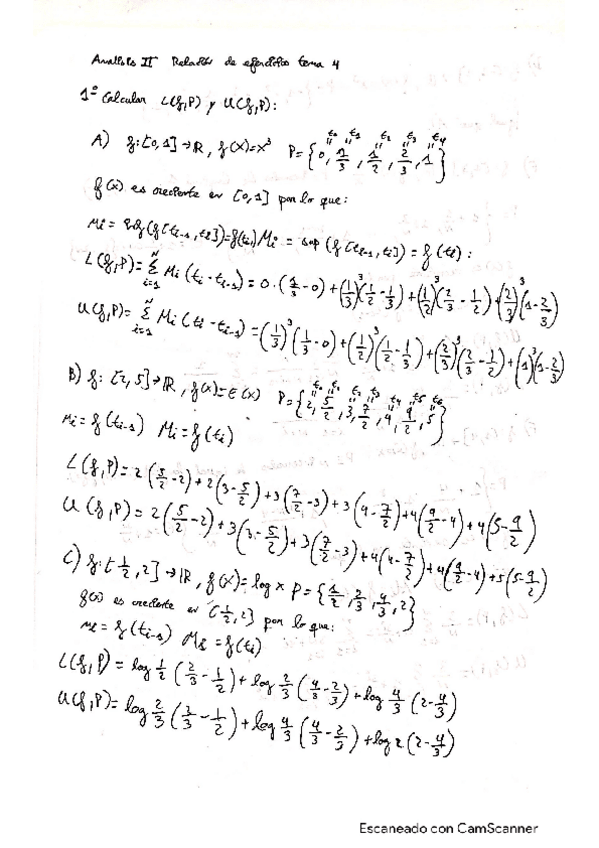 Analisis II Relación de ejercicios tema 4
1º Calcular L(f,P) y U(f,P):
A) f:[0,1]→ℝ, f(x)=x³ P={0, 1/3, 1/2, 2/3, 1}
t₀ t₁ t₂ t₃ t₄
f(x) es creciente en [0,1] por lo que:
mi = inf(f[ti-1,ti])=f(ti-1) Mi = sup(f[ti-1,ti]) = f(ti):
L(f,P)=∑ᵢ₌₁ᴺ mi(ti-ti-1)=0·(1/3-0)+(1/3)³(1/2-1/3)+(1/2)³(2/3-1/2)+(2/3)³(1-2/3)
U(f,P)=∑ᵢ₌₁ᴺ Mi(ti-ti-1)=(1/3)³(1/3-0)+(1/2)³(1/2-1/3)+(2/3)³(2/3-1/2)+(1)³(1-2/3)
B) f:[2,5]→ℝ, f(x)=E(x) P={2, 5/2, 3, 7/2, 4, 9/2, 5}
mi=f(ti-1) Mi=f(ti)
L(f,P)=2(5/2-2)+2(3-5/2)+3(7/2-3)+3(4-7/2)+4(9/2-4)+4(5-9/2)
U(f,P)=2(5/2-2)+3(3-5/2)+3(7/2-3)+4(4-7/2)+4(9/2-4)+5(5-9/2)
C) f:[1/2,2]→ℝ, f(x)=log x P={1/2, 2/3, 4/3, 2}
f(x) es creciente en [1/2,2] por lo que:
mi=f(ti-1) Mi=f(ti)
L(f,P)=log 1/2 (2/3-1/2)+log 2/3 (4/3-2/3)+log 4/3 (2-4/3)
U(f,P)=log 2/3 (2/3-1/2)+log 4/3 (4/3-2/3)+log 2 (2-4/3)
Escaneado con CamScanner